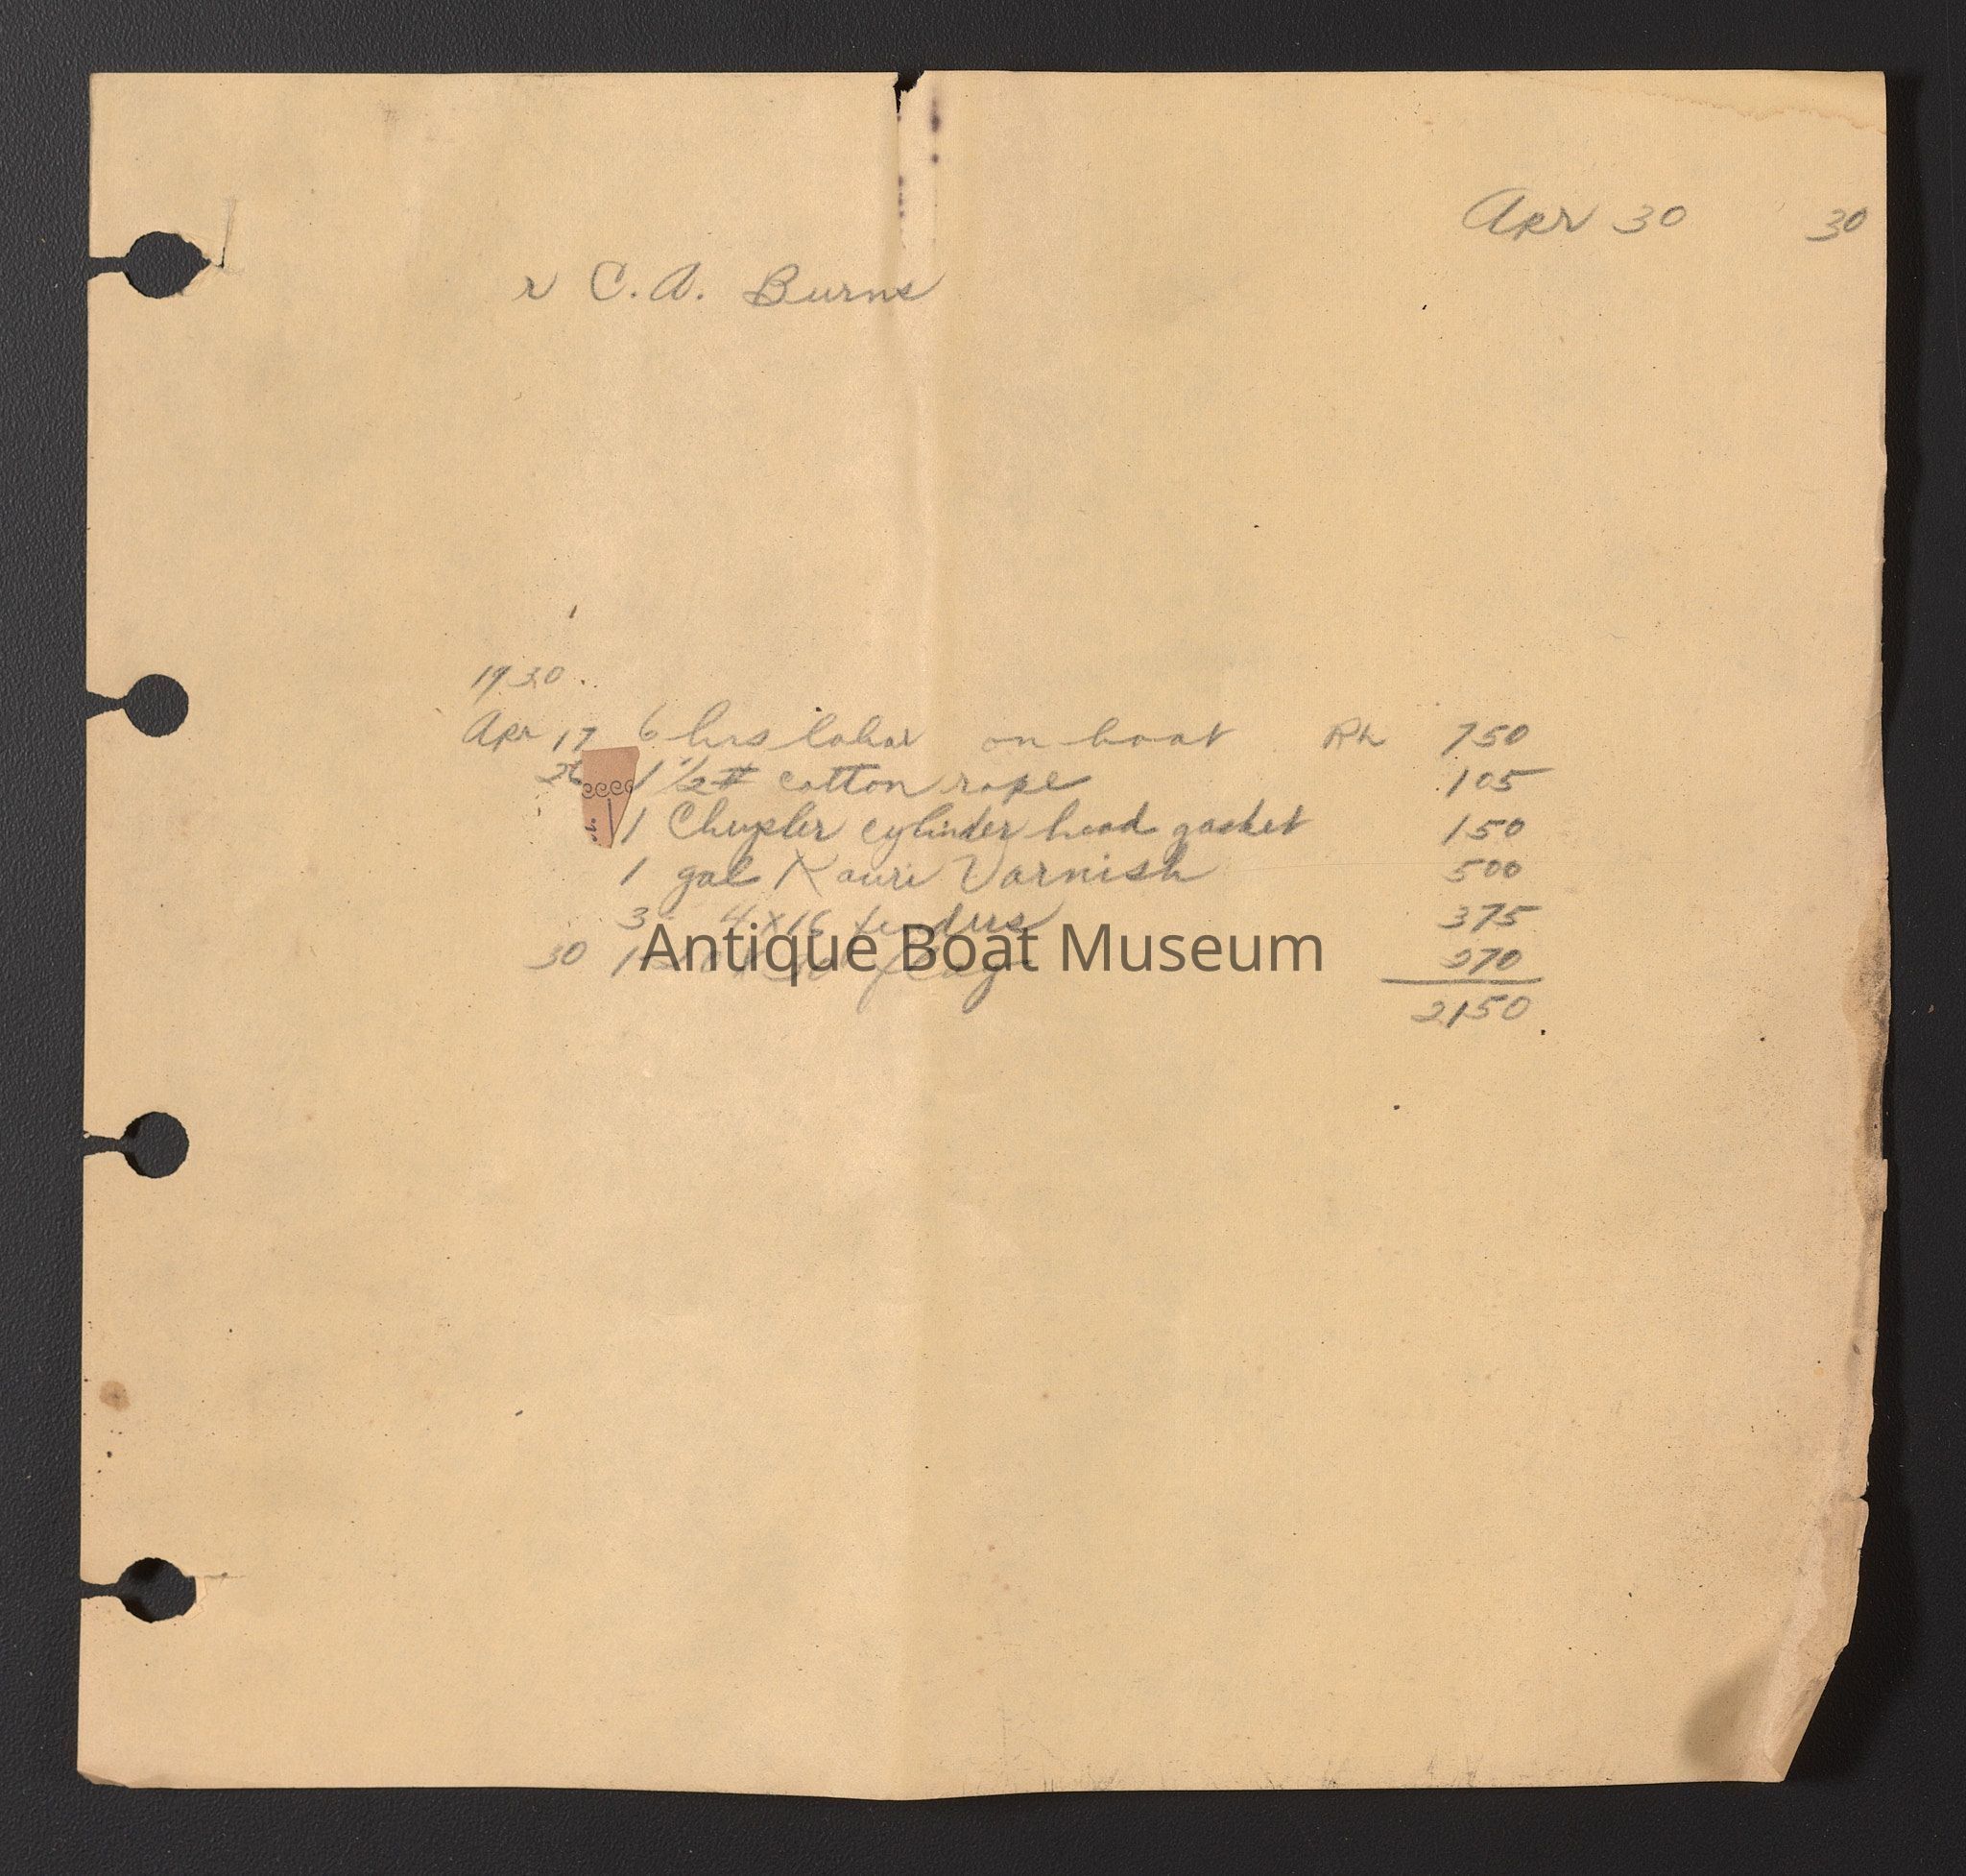 Apr 30 30
r C. A. Burns
1930.
Apr 17 6 hrs labor on boat Rh 750
26 1 1/2 # cotton rope 105
1 Chrysler cylinder head gasket 150
1 gal Kauri Varnish 500
3 4x16 fenders 375
30 1 flag 270
2150
Antique Boat Museum